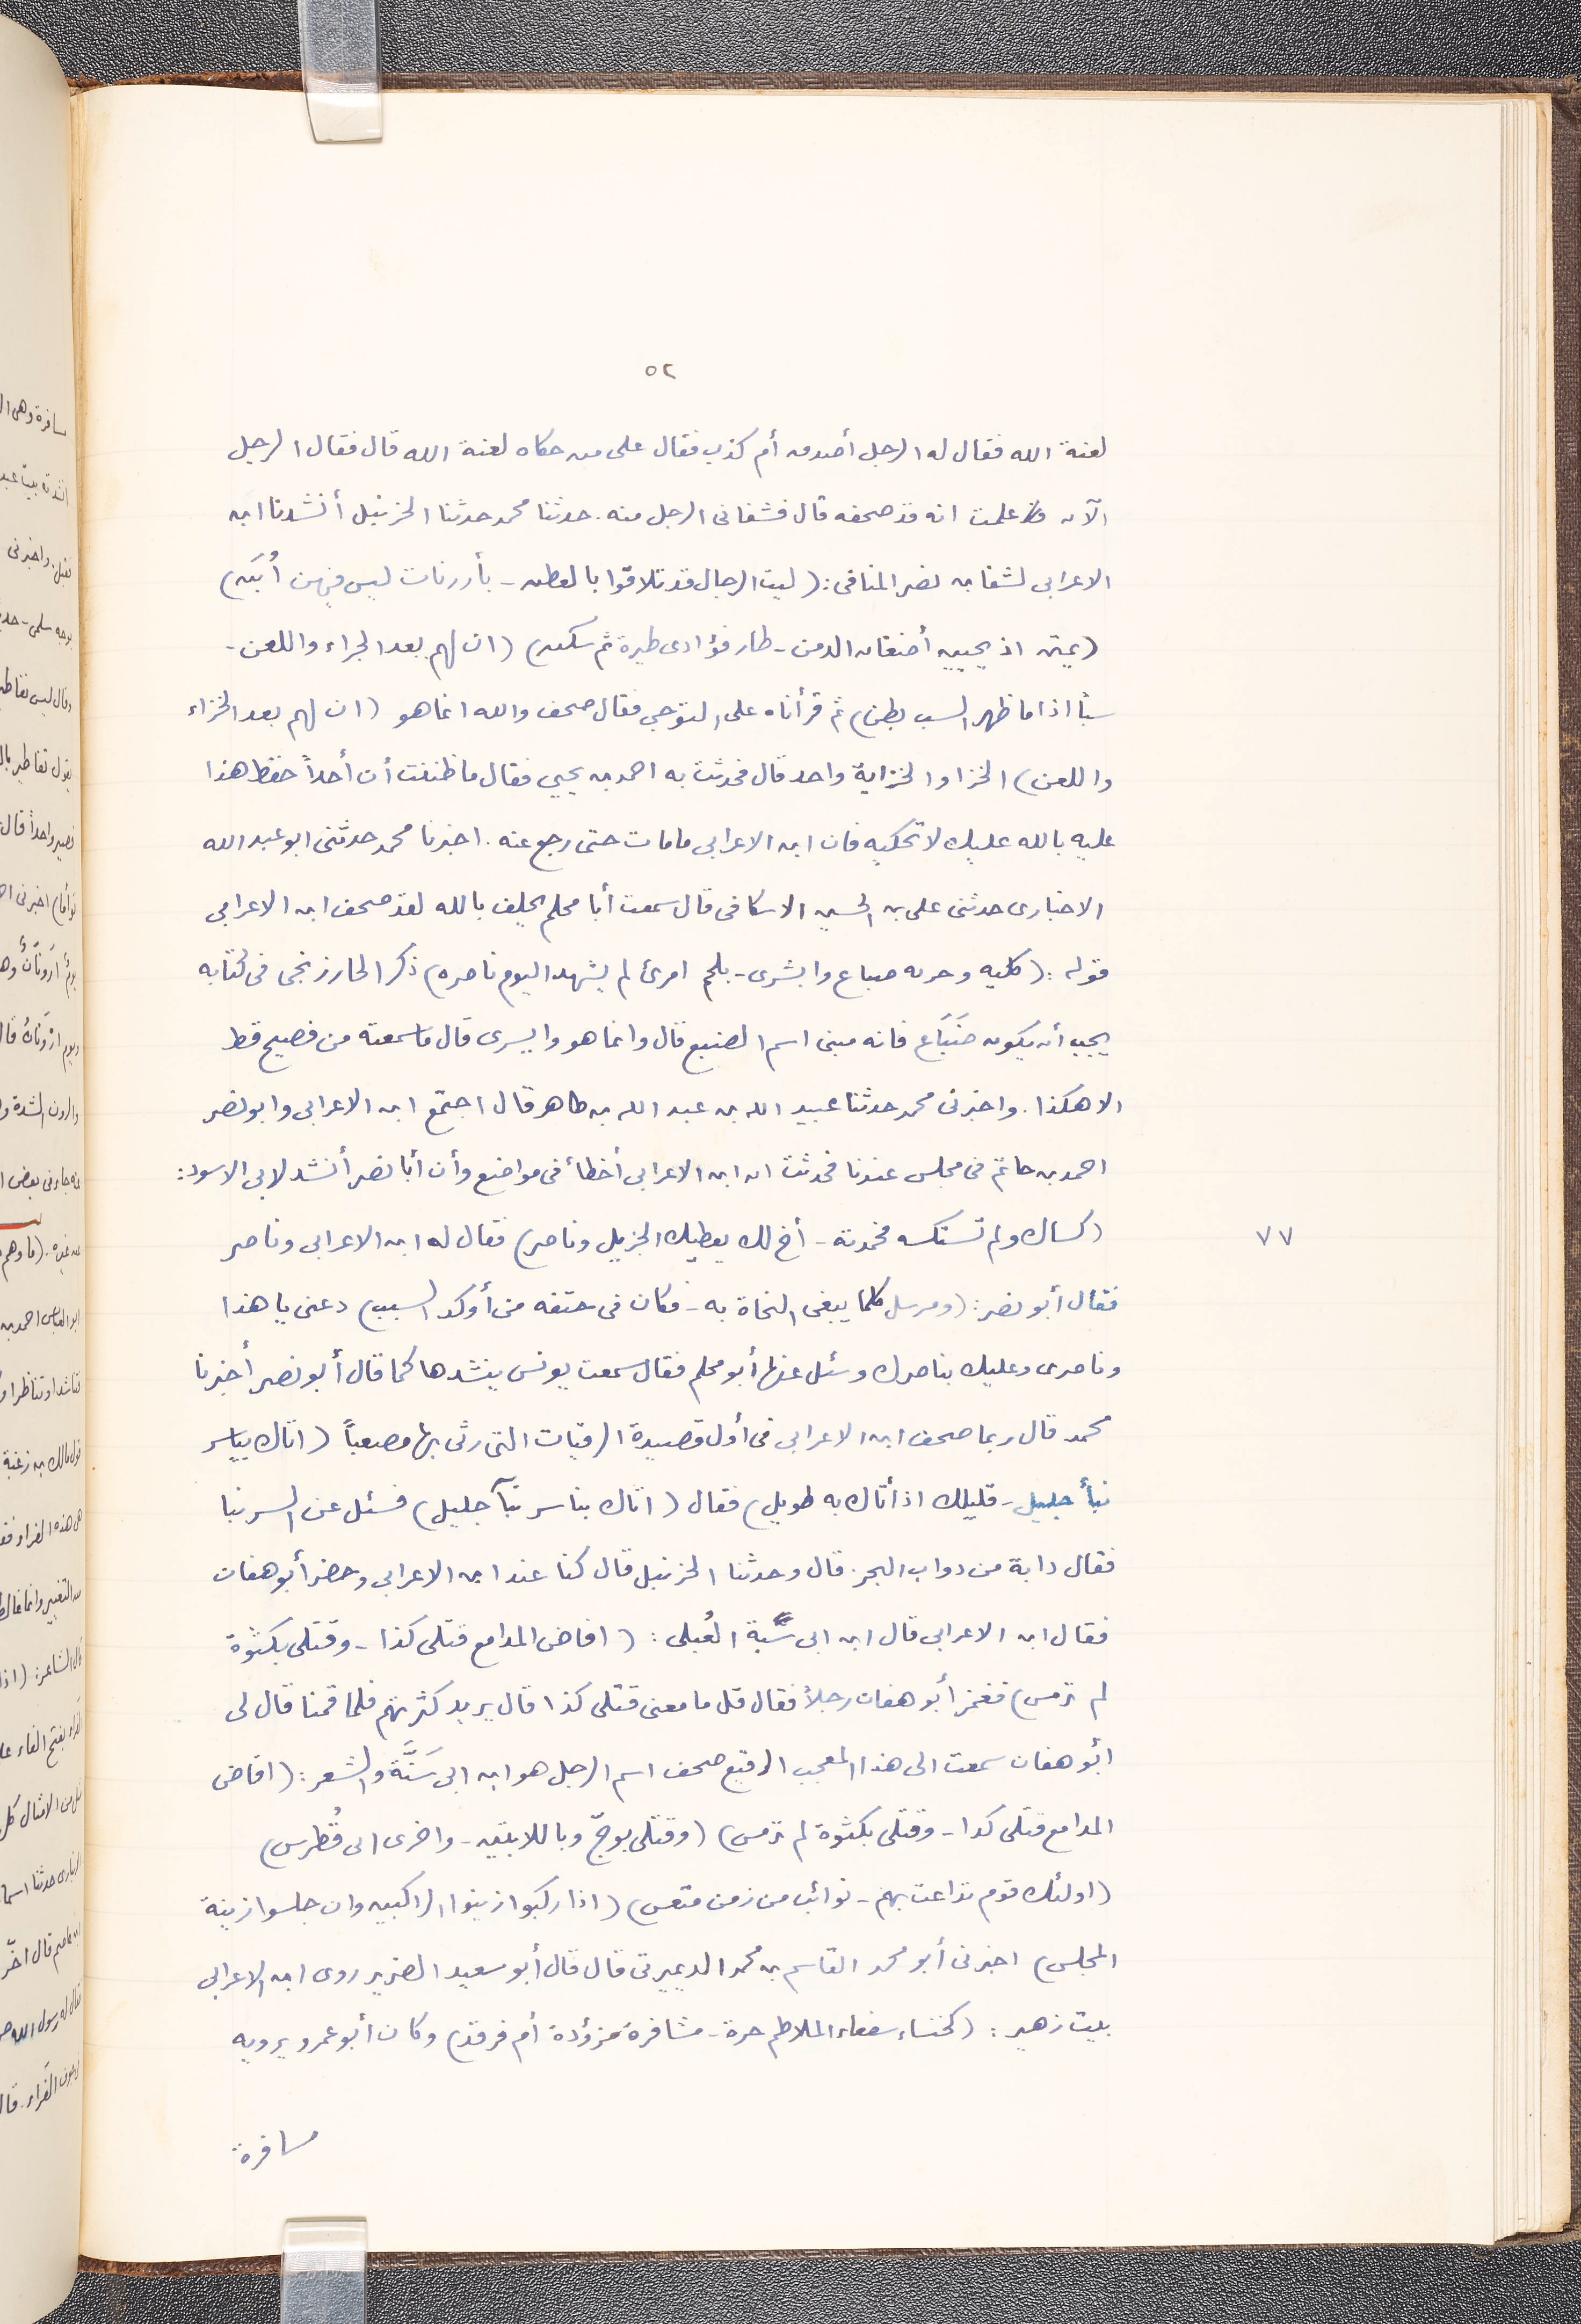 ٥٢
لعنة الله فقال له الرجل أصدق أم كذب فقال على من حكاه لعنة الله قال فقال الرجل
الآن علمت انه قد صحفه قال فشفانى الرجل منه. حدثنا محمد حدثنا الحزنبل أنشدنا ابن
الاعرابى لشقا بن نصر المنافى: (ليت الرجال قد تلاقوا بالعطن - بأررنات ليس فيهن أُبَن)
(يمتن اذ يحيين أضغان الدمن - طار فؤادى طيرة ثم سكن) (ان لهم بعد الجراء واللعن -
سبّا اذا ما ظهر السب بطن) ثم قرأناه على التوجى فقال صحف والله انما هو (ان لهم بعد الخزاء
واللعن) الخزا والخزاية واحد قال فحدثت به احمد بن يحيى فقال ما ظننت أن أحداً حفظ هذا
عليه بالله عليك لا تحكيه فان ابن الاعرابى ما مات حتى رجع عنه. اخبرنا محمد حدثنى ابو عبد الله
الاخبارى حدثنى على بن الحسين الاسكافى قال سمعت أبا محلم يحلف بالله لقد صحف ابن الاعرابى
قوله: (كليه وجريه ضباع وابشرى - بلحم امرئ لم يشهد اليوم ناصره) ذكر الخارزنجى فى كتابه
يجب أن يكون ضَبَاع فانه مبنى اسم الضبع قال وانما هو وايسرى قال ما سمعته من فصيح قط
الا هكذا. واخبرنى محمد حدثنا عبيد الله بن عبد الله بن طاهر قال اجتمع ابن الاعرابى وابو نصر
احمد بن حاتم فى مجلس عندنا فحدثت ان ابن الاعرابى أخطأ فى مواضع وأن أبا نصر أنشد لابى الاسود:
(كساك ولم تستكسه فحمدته - أخ لك يعطيك الجزيل وناصر) فقال له ابن الاعرابى وناصر
٧٧
فقال أبو نصر: (ومرسل كلما يبغى النجاة به - فكان فى حتفه من أوكد السبب) دعنى يا هذا
وناصرى وعليك بناصرك وسئل عنها أبو محلم فقال سمعت يونس ينشدها كما قال أبو نصر أخبرنا
محمد قال ربما صحف ابن الاعرابى فى أول قصيدة الرقيات التى رثى بها مصعباً (اتاك بياسر
نبأ جليل - قليلك اذ أتاك به طويل) فقال (اتاك بناسر نبآ جليل) فسئل عن السر نبا
فقال دابة من دواب البحر. قال وحدثنا الحزنبل قال كنا عند ابن الاعرابى وحضر أبو هفان
فقال ابن الاعرابى قال ابن ابى سَبّة العُبلى: (افاض المدامع قتلى كذا - وقتلى بكثوة
لم ترمس) فغمز أبو هفان رجلاً فقال قل ما معنى قتلى كذا قال يريد كثرتهم فلما قمنا قال لى
أبو هفان سمعت الى هذا المعجب الرقيع صحف اسم الرجل هو ابن ابى سَنَّة والشعر: (افاض
المدامع قتلى كدا - وقتلى بكثوة لم ترمس) (وقتلى بوجّ وباللابتين - واخرى الى قُطرس)
(اولئك قوم تداعت بهم - نوائب من زمن متعس) (اذا ركبوا زينوا الراكبين وان جلسوا زينة
المجلس) اخبرنى أبو محمد القاسم بن محمد الديميرتى قال قال أبو سعيد الضرير روى ابن الاعرابى
بيت زهير: (كخنساء سفعاء الملاطم حرة - مشافرة مزؤدة أم فرقد) وكان أبو عمرو يرويه
مسافرة